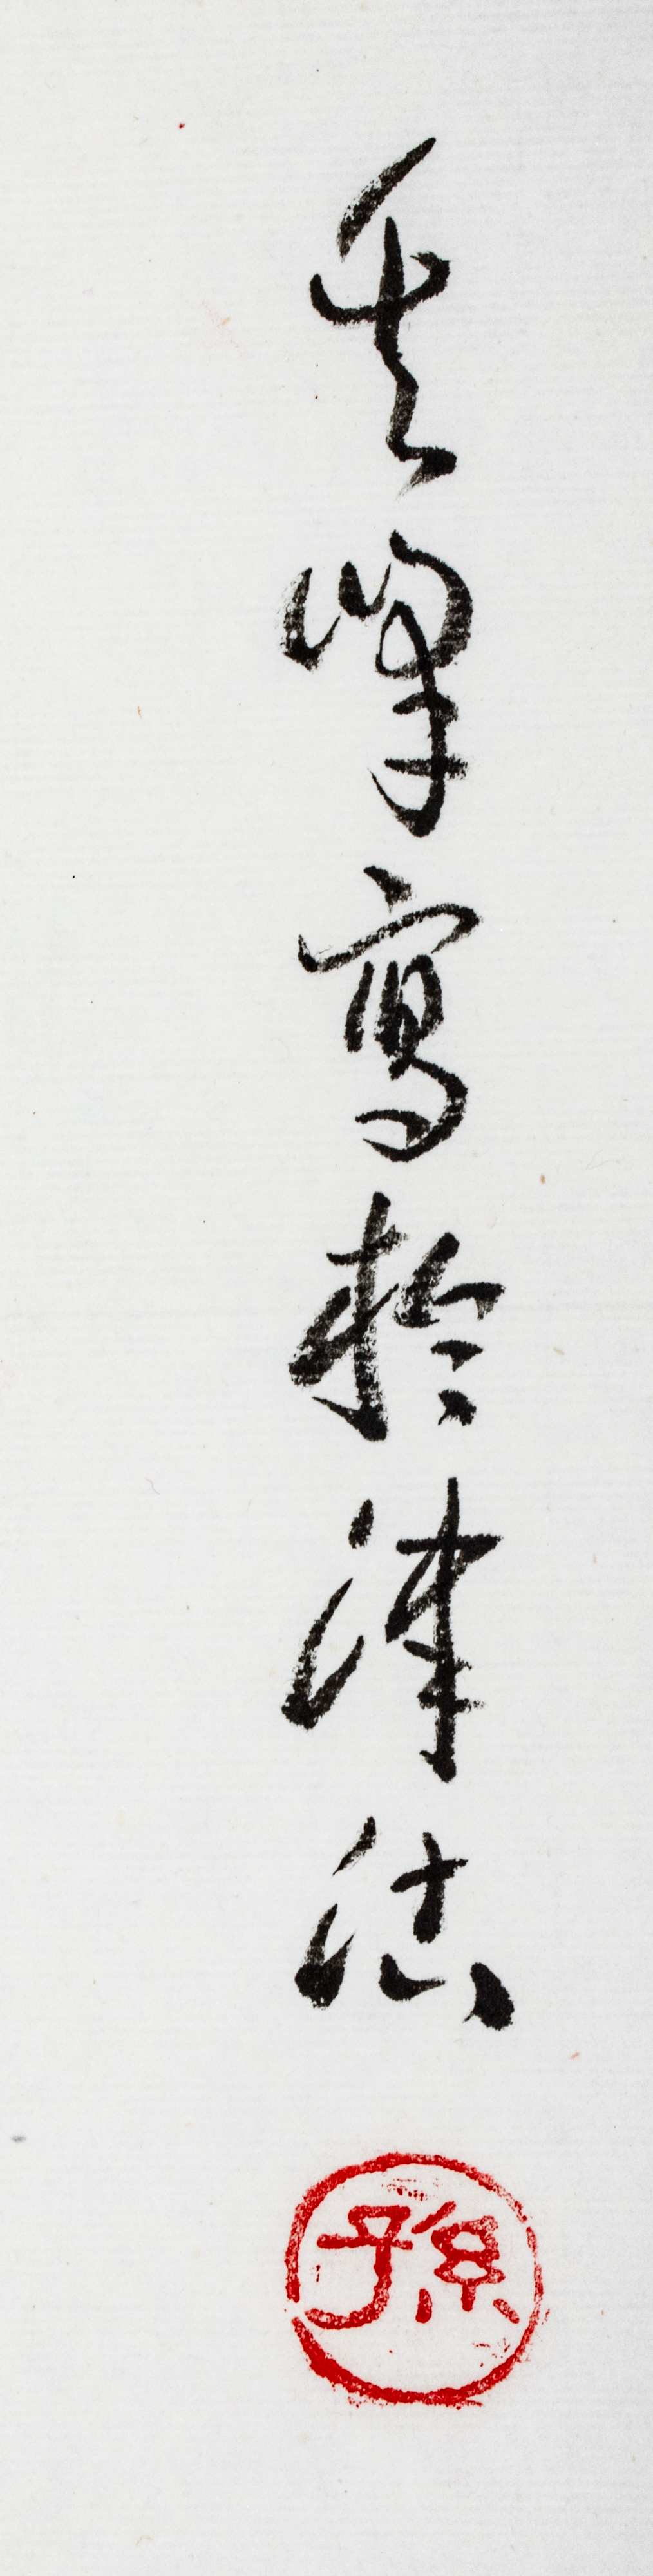 其峰寫於津沽
孫